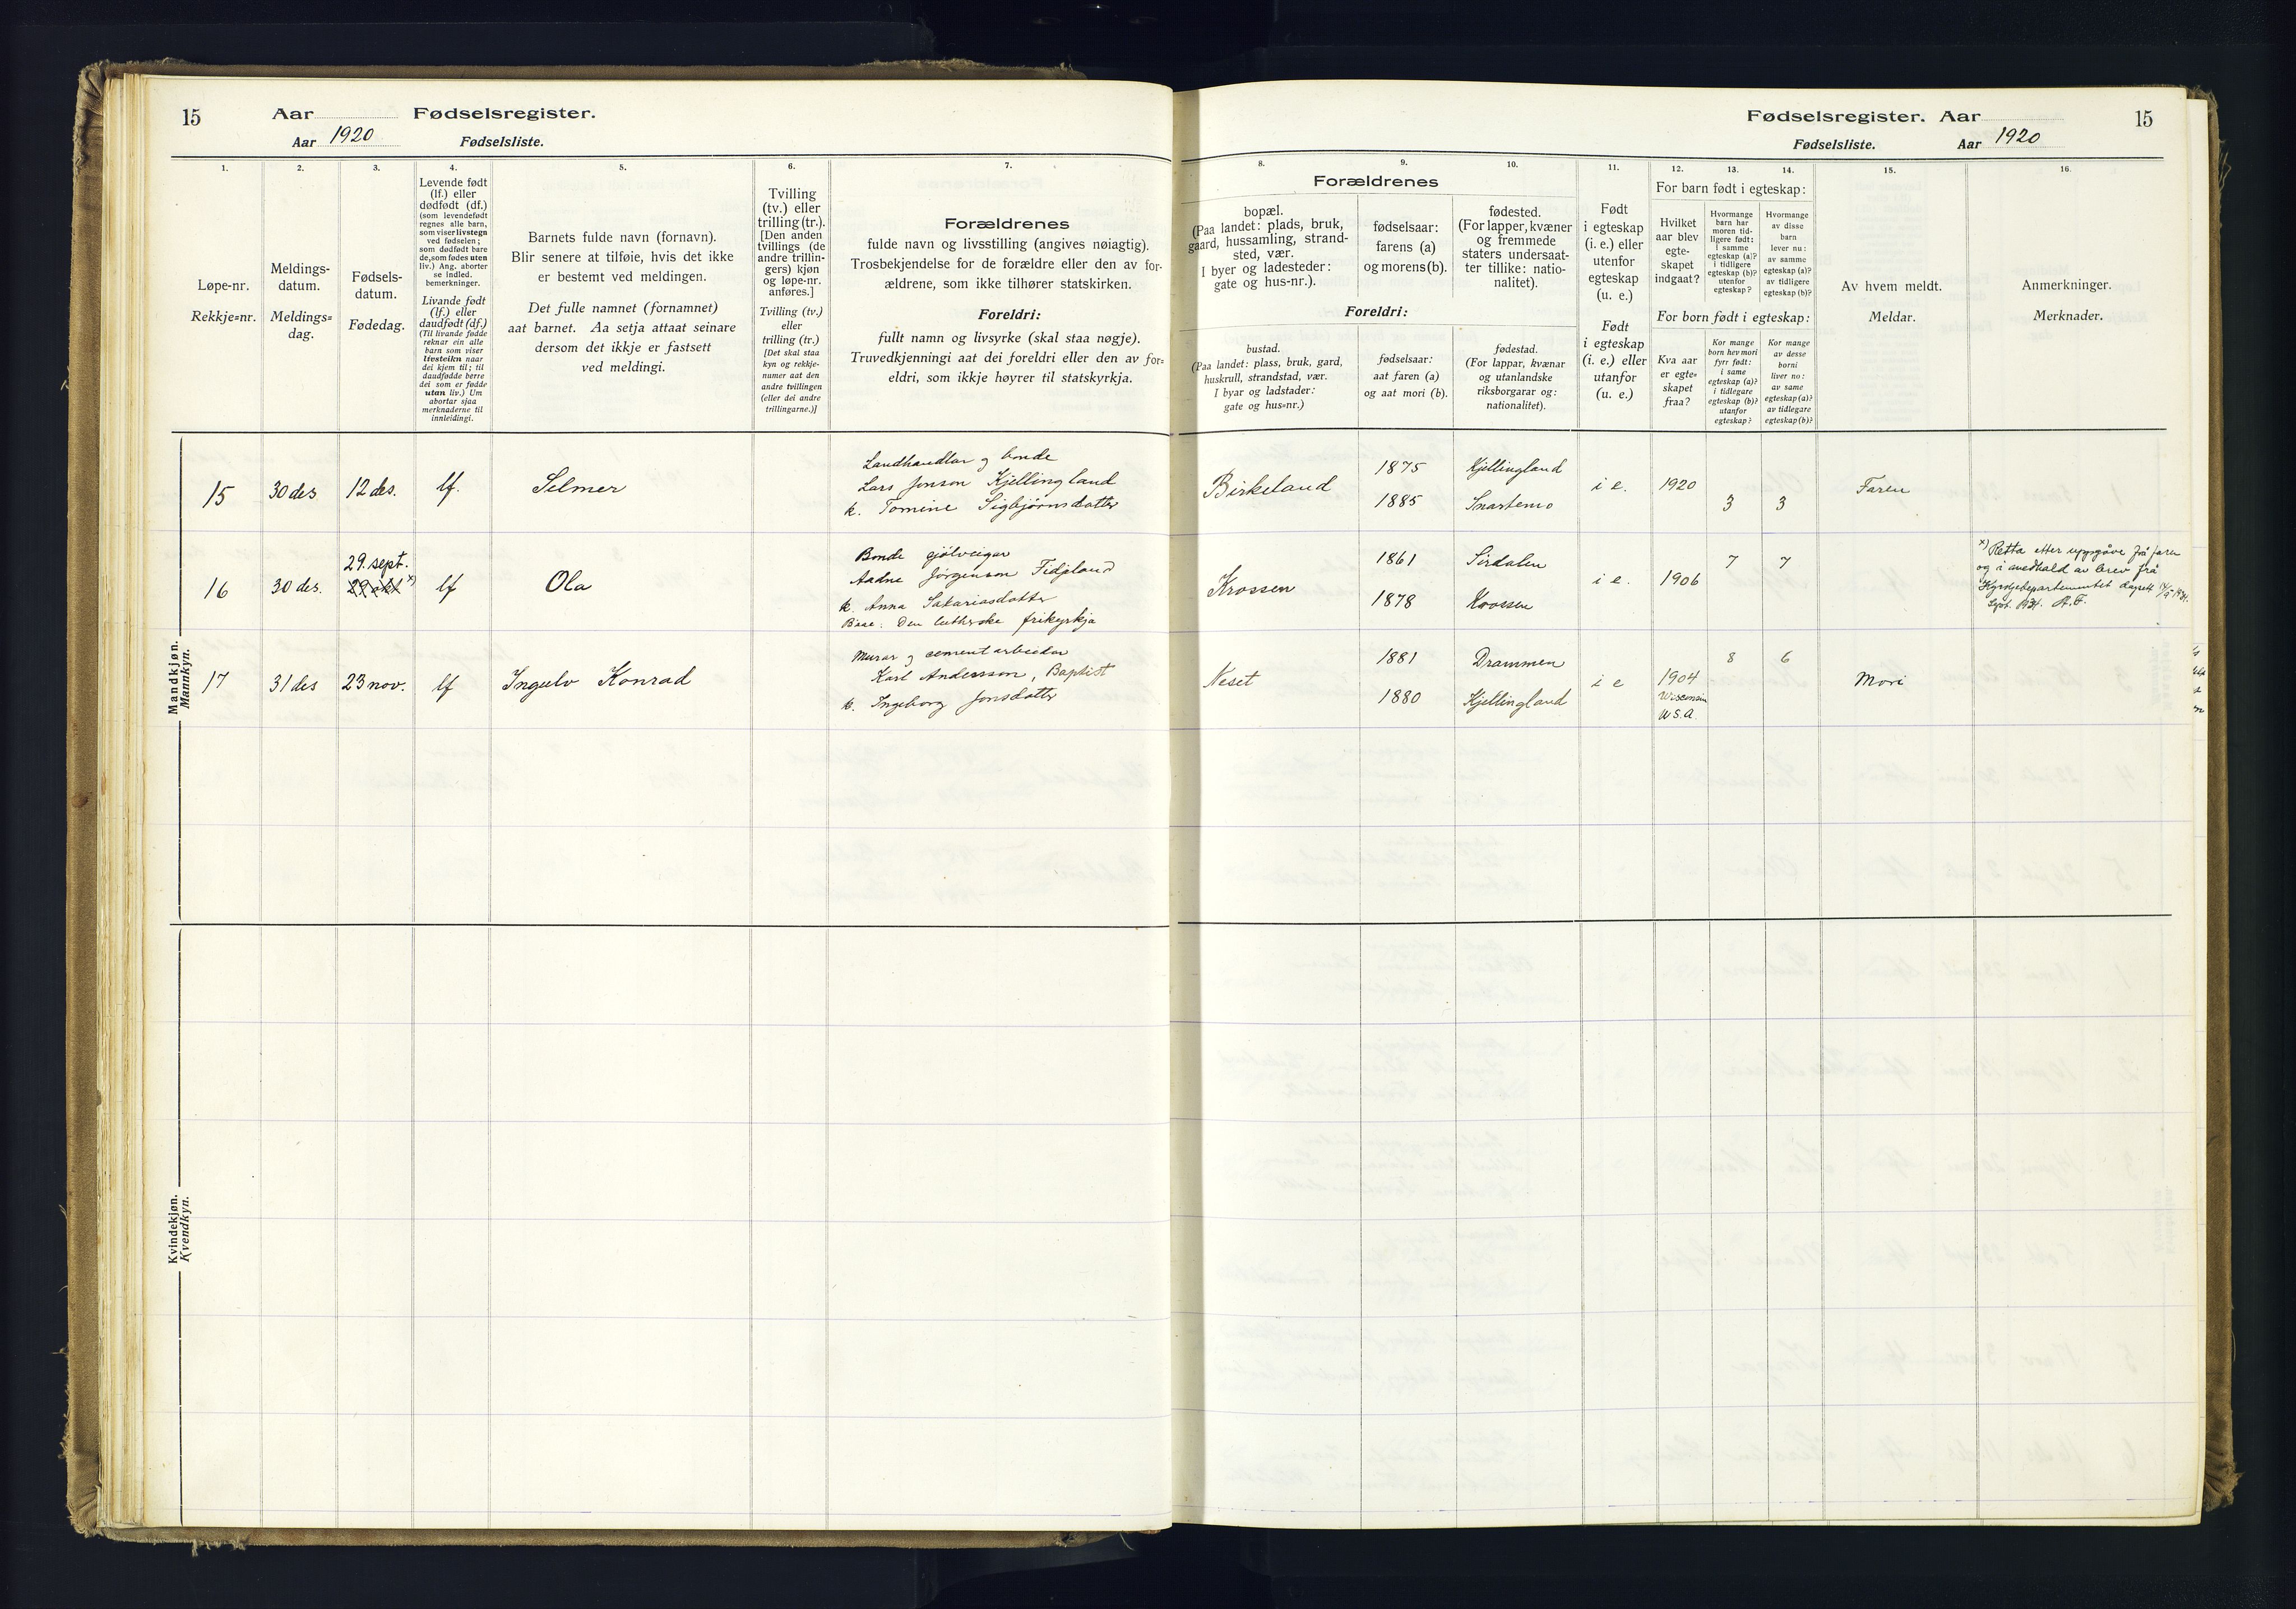 15
Aar
Fødselsregister.
Aar 1920
Fødselsliste.
1.
2.
3.
4.
5.
6.
7.
Løpe-nr.
Rekkje=nr.
Meldings-
datum.
Meldings=
dag.
Fødsels-
datum.
Fødedag.
Levende født
(lf.) eller
dødfødt (df.)
(som levendefødt
regnes alle barn,
som viser livstegn
ved fødselen;
som dødfødt bare
de, som fødes uten
liv.) Ang. aborter
se indled.
bemerkninger.
Livande født
(lf.) eller
daudfødt (df.)
(Til livande fødde
reknar ein alle
barn som viser
livsteikn naar
dei kjem til; til
daudfødde berre
dei som er fødde
utan liv.) Um
abortar sjaa
merknaderne til
innleidingi.
Barnets fulde navn (fornavn).
Blir senere at tilføie, hvis det ikke
er bestemt ved meldingen.
Det fulle namnet (fornamnet)
aat barnet. Aa setja attaat seinare
dersom det ikkje er fastsett
ved meldingi.
Tvilling
(tv.) eller
trilling (tr.).
[Den anden
tvillings (de
andre trillin-
gers) kjøn
og løpe-nr.
anføres.]
Tvilling (tv.)
eller
trilling (tr.)
[Det skal staa
kyn og rekkje-
numer aat den
andre tvillingen
(eller dei andre
trillingarne.)]
Forældrenes
fulde navn og livsstilling (angives nøiagtig).
Trosbekjendelse for de forældre eller den av for-
ældrene, som ikke tilhører statskirken.
Foreldri:
fullt namn og livsyrke (skal staa nøgje).
Truvedkjenningi aat dei foreldri eller den av for=
eldri, som ikkje høyrer til statskyrkja.
Mandkjøn.
Mannkyn.
15
30 des
12 des.
lf.
Selmer
Landhandlar og bonde
Lars Jonson Kjellingland
k. Tomine Sigbjørnsdotter
16
30 des.
29. sept.
29 okt x)
lf
Ola
Bonde sjølveigar
Aadne Jørgenson Fidjeland
k. Anna Sakariasdotter
Baae: Den lutherske frikyrkja
17
31 des
23 nov.
lf
Ingulv Konrad
Murar og cementarbeidar
Karl Anderson, Baptist
k. Ingeborg Jonsdotter
Kvindekjøn.
Kvendkyn.
Fødselsregister. Aar
15
Fødselsliste.
Aar 1920
8.
9.
10.
11.
12.
13.
14.
15.
16.
Forældrenes
bopæl.
(Paa landet: plads, bruk,
gaard, hussamling, strand-
sted, vær.
I byer og ladesteder:
gate og hus-nr.).
fødselsaar:
farens (a)
og morens (b).
fødested.
(For lapper, kvæner
og fremmede
staters undersaat-
ter tillike: natio-
nalitet).
Foreldri:
bustad.
(Paa landet: plass, bruk, gard,
huskrull, strandstad, vær.
I byar og ladstader:
gate og hus=nr.)
fødselsaar:
aat faren (a)
og aat mori (b).
fødestad.
(For lappar, kvænar
og utanlandske
riksborgarar og:
nationalitet).
Født
i egteskap
(i. e.) eller
utenfor
egteskap
(u. e.)
Født
i egteskap
(i. e.) eller
utanfor
(u. e.)
For barn født i egteskap:
Hvilket
aar blev
egte-
skapet
indgaat?
Hvormange
barn har
moren tid-
ligere født:
i samme
egteskap (a)?
i tidligere
egteskap (b)?
utenfor
egteskap?
Hvormange
av disse
barn
lever nu:
av samme
egteskap (a)?
av tidligere
egteskap (b)?
For born født i egteskap:
Kva aar
er egte=
skapet
fraa?
Kor mange
born hev mori
fyrr født:
i same
egteskap (a)?
i tidlegare
egteskap (b)?
utanfor
egteskap?
Kor mange
av desse
borni
liver no:
av same
egteskap (a)?
av tidlegare
egteskap (b)?
Av hvem meldt.
Meldar.
Anmerkninger.
Merknader.
Birkeland
1875
1885
Kjellingland
Snartemo
i e.
1920
3
3
Faren
Krossen
1861
1878
Sirdalen
Krossen
i e.
1906
7
7
x) Retta etter uppgåve frå faren
og i medhald av brev frå
Kyrkjedepartementet
Neset
1881
1880
Drammen
Kjellingland
i e
1904
Wisconsin
U.S.A.
8
6
Mori